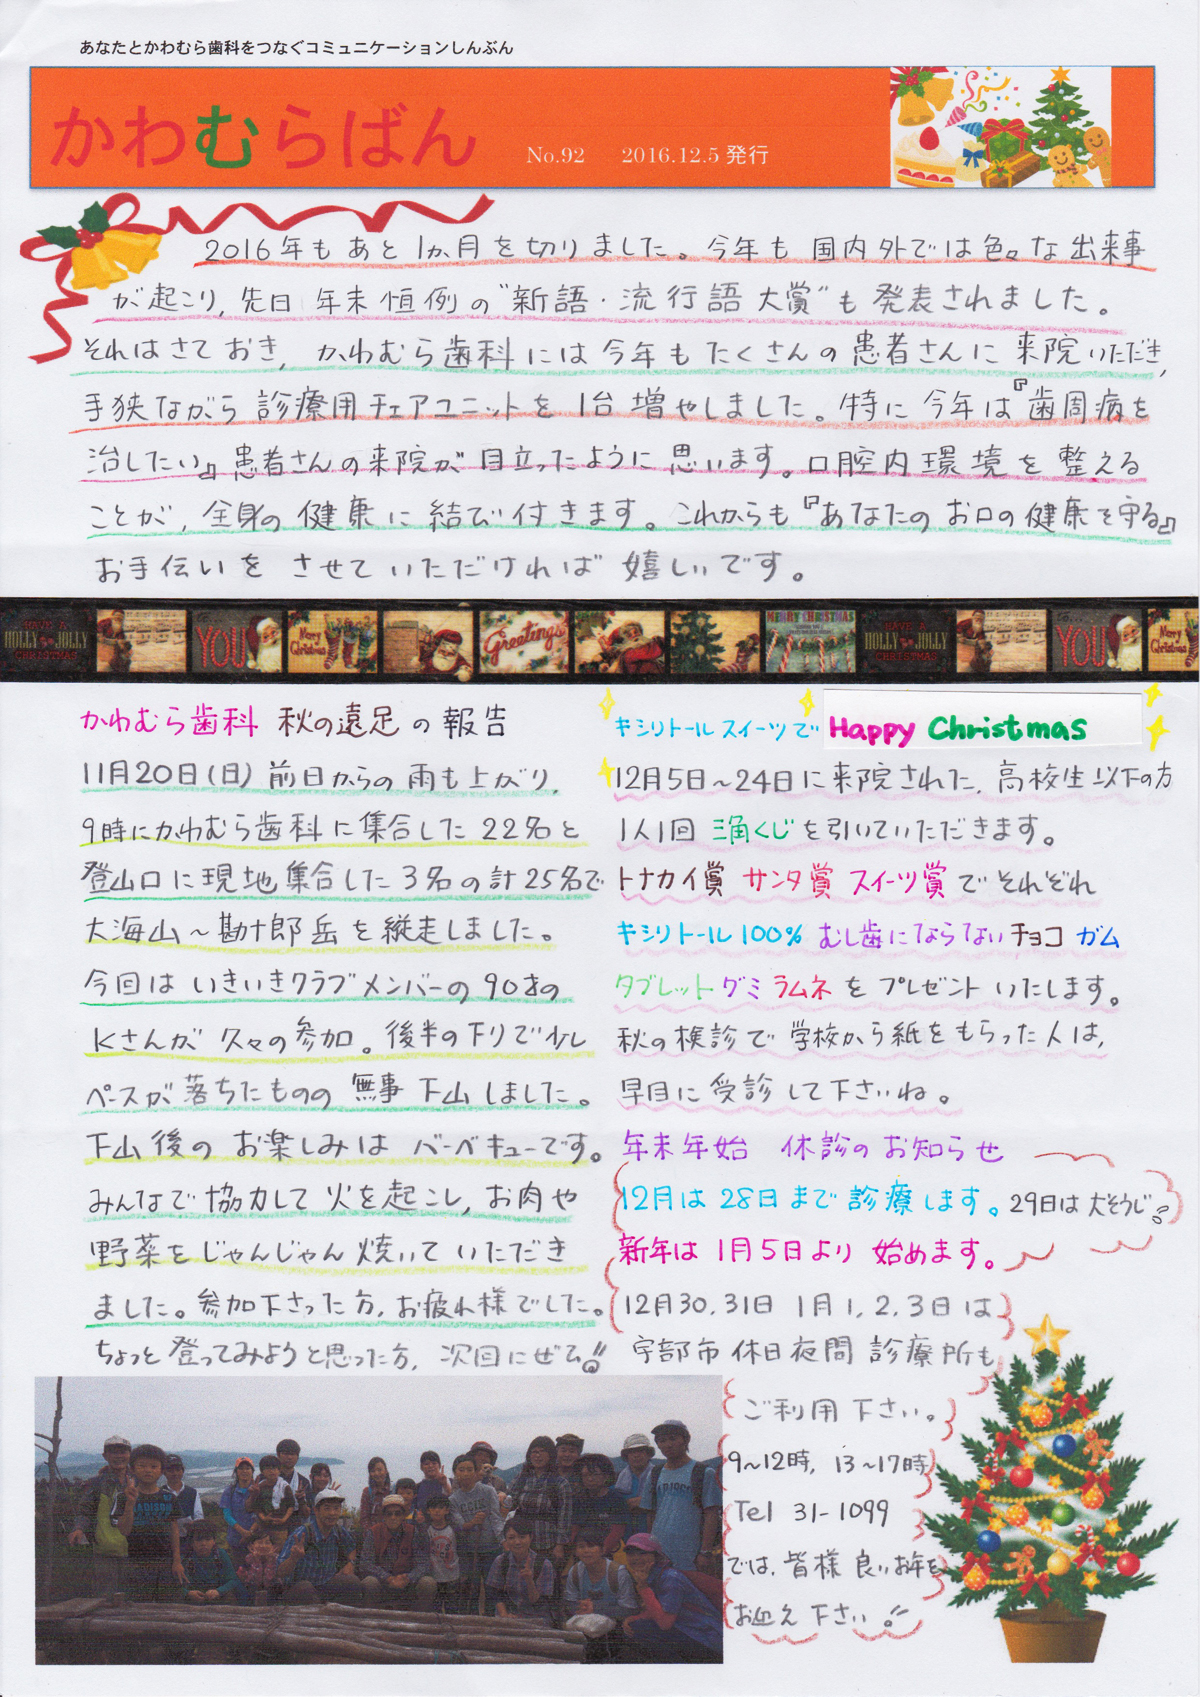 あなたとかわむら歯科をつなぐコミュニケーションしんぶん
かわむらばん No.92 2016.12.5 発行
2016年もあと1ヵ月を切りました。今年も国内外では色々な出来事
が起こり、先日年末恒例の"新語・流行語大賞"も発表されました。
それはさておき、かわむら歯科には今年もたくさんの患者さんに来院いただき、
手狭ながら診療用チェアユニットを1台増やしました。特に今年は『歯周病を
治したい』患者さんの来院が目立ったように思います。口腔内環境を整える
ことが、全身の健康に結び付きます。これからも『あなたのお口の健康を守る』
お手伝いをさせていただければ嬉しいです。
HAVE A HOLLY JOLLY CHRISTMAS YOU Merry Christmas Greetings MERRY CHRISTMAS HAVE A HOLLY JOLLY CHRISTMAS YOU Merry Christmas
かわむら歯科 秋の遠足の報告
11月20日(日)前日からの雨も上がり、
9時にかわむら歯科に集合した22名と
登山口に現地集合した3名の計25名で
大海山~勘十郎岳を縦走しました。
今回はいきいきクラブメンバーの90才の
Kさんが久々の参加。後半の下りで少し
ペースが落ちたものの無事下山しました。
下山後のお楽しみはバーベキューです。
みんなで協力して火を起こし、お肉や
野菜をじゃんじゃん焼いていただき
ました。参加下さった方、お疲れ様でした。
ちょっと登ってみようと思った方、次回にぜひ!!
キシリトールスイーツで Happy Christmas
12月5日~24日に来院された、高校生以下の方
1人1回三角くじを引いていただきます。
トナカイ賞 サンタ賞 スイーツ賞でそれぞれ
キシリトール100% むし歯にならない チョコ ガム
タブレット グミ ラムネ をプレゼントいたします。
秋の検診で学校から紙をもらった人は、
早目に受診して下さいね。
年末年始 休診のお知らせ
12月は28日まで診療します。29日は大そうじ!!
新年は1月5日より始めます。
12月30、31日 1月1、2、3日は
宇部市休日夜間診療所も
ご利用下さい。
9~12時、13~17時
Tel 31-1099
では、皆様良いお年を
お迎え下さい!!